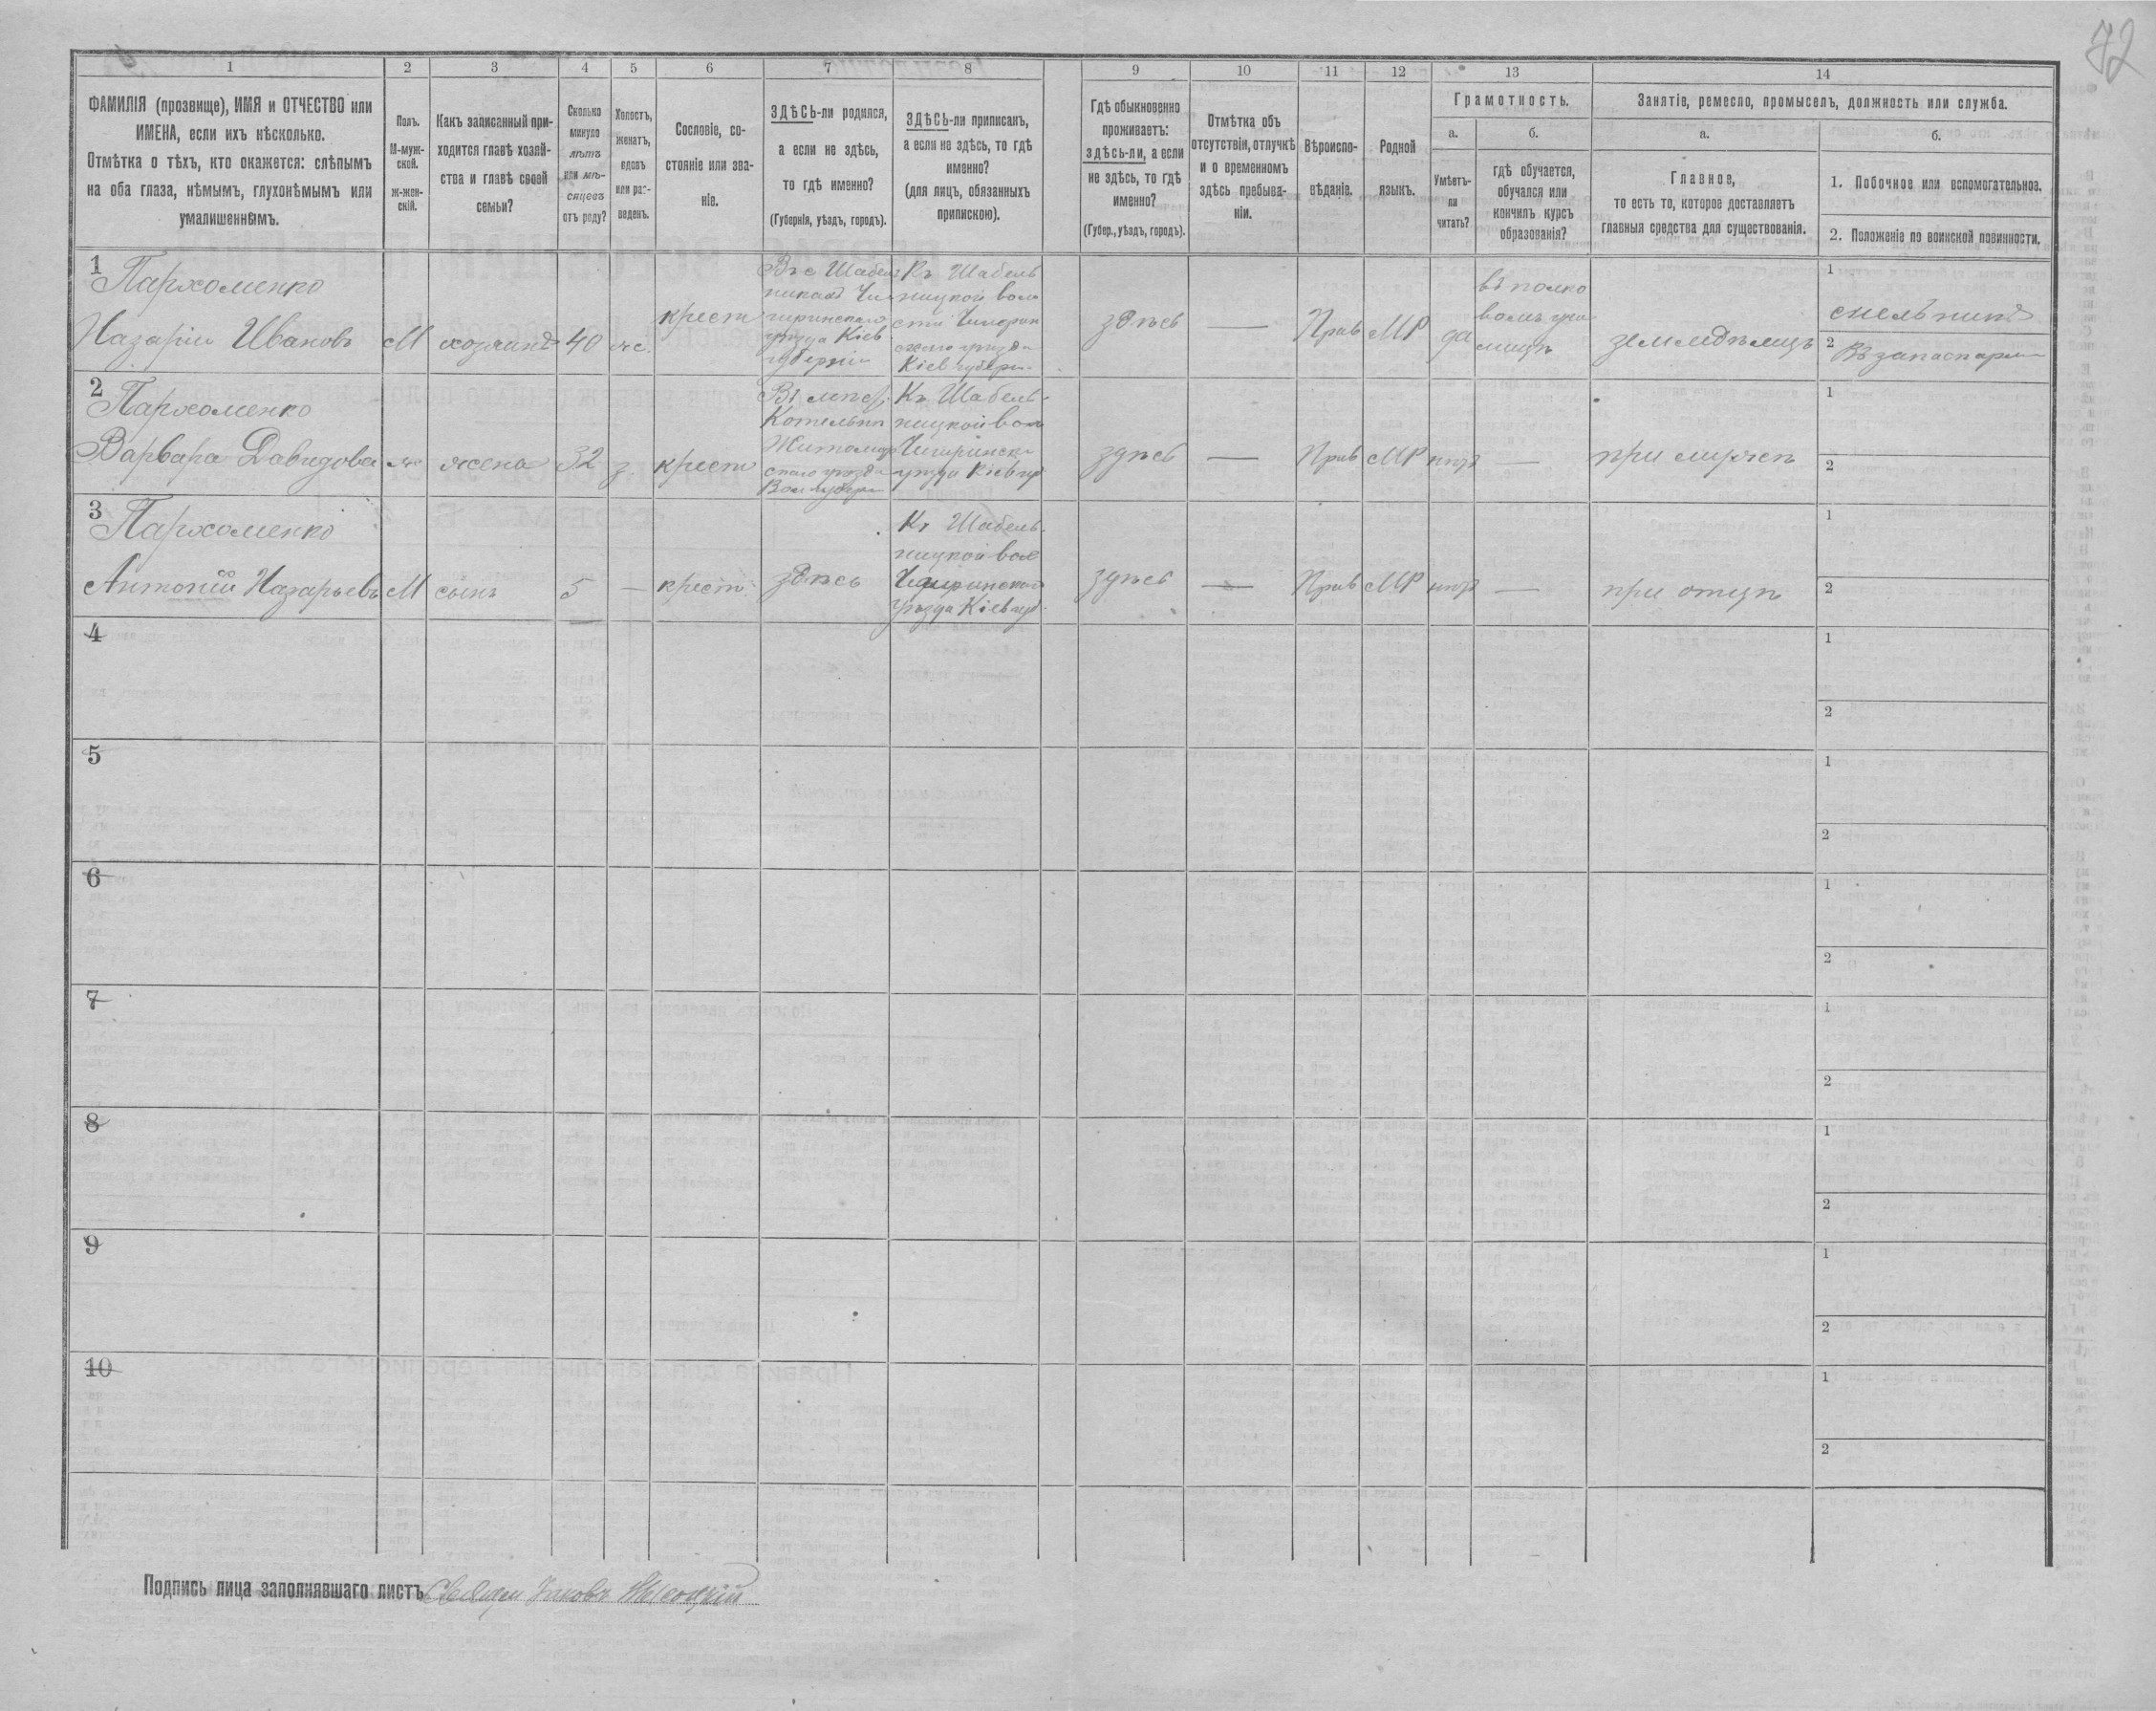 72
1 2 3 4 5 6 7 8 9 10 11 12 13 14
ФАМИЛІЯ (прозвище), ИМЯ и ОТЧЕСТВО или
ИМЕНА, если ихъ нѣсколько.
Отмѣтка о тѣхъ, кто окажется: слѣпымъ
на оба глаза, нѣмымъ, глухонѣмымъ или
умалишеннымъ.
Полъ.
М-муж-
ской.
ж-жен-
скій.
Какъ записанный при-
ходится главѣ хозяй-
ства и главѣ своей
семьи?
Сколько
минуло
лѣтъ
или мѣ-
сяцевъ
отъ роду?
Холостъ,
женатъ,
вдовъ
или раз-
веденъ.
Сословіе, со-
стояніе или зва-
ніе.
ЗДѢСЬ-ли родился,
а если не здѣсь,
то гдѣ именно?
(Губернія, уѣздъ, городъ).
ЗДѢСЬ-ли приписанъ,
а если не здѣсь, то гдѣ
именно?
(для лицъ, обязанныхъ
припискою).
Гдѣ обыкновенно
проживаетъ:
здѣсь-ли, а если
не здѣсь, то гдѣ
именно?
(Губер., уѣздъ, городъ).
Отмѣтка объ
отсутствіи, отлучкѣ
и о временномъ
здѣсь пребыва-
ніи.
Вѣроиспо-
вѣданіе.
Родной
языкъ.
Грамотность.
а.
Умѣетъ-
ли
читать?
б.
гдѣ обучается,
обучался или
кончилъ курсъ
образованія?
Занятіе, ремесло, промыселъ, должность или служба.
а.
Главное,
то есть то, которое доставляетъ
главныя средства для существованія.
б.
1. Побочное или вспомогательное.
2. Положеніе по воинской повинности.
1
Пархоменко
Назарій Ивановъ
М
хозяинъ
40
ж.
крест
Въ с Шабель
никахъ Чи
гиринскаго
уѣзда Кіев
губерніи
Къ Шабель
ницкой воло
сти Чигирин
скаго уѣзда
Кіев губерн
здѣсь
—
Прав
МР
да
въ полко
вомъ учи
лищѣ
земледѣлецъ
1
2
Въ запас арміи
2
Пархоменко
Варвара Давидова
ж
жена
32
з.
крест
Котельни
Житомир
скаго уѣзда
Вол губерн
Къ Шабель-
ницкой вол
Чигиринск
уѣзда Кіев гу
здѣсь
—
Прав
МР
нѣтъ
—
при мужѣ
1
2
3
Пархоменко
Антоній Назарьевъ
М
сынъ
5
—
крест
здѣсь
Къ Шабель-
ницкой вол
Чигиринскаго
уѣзда Кіев губ.
здѣсь
—
Прав
МР
нѣтъ
—
при отцѣ
1
2
4
1
2
5
1
2
6
1
2
7
1
2
8
1
2
9
1
2
10
1
2
Подпись лица заполнявшаго листъ Священ Яковъ